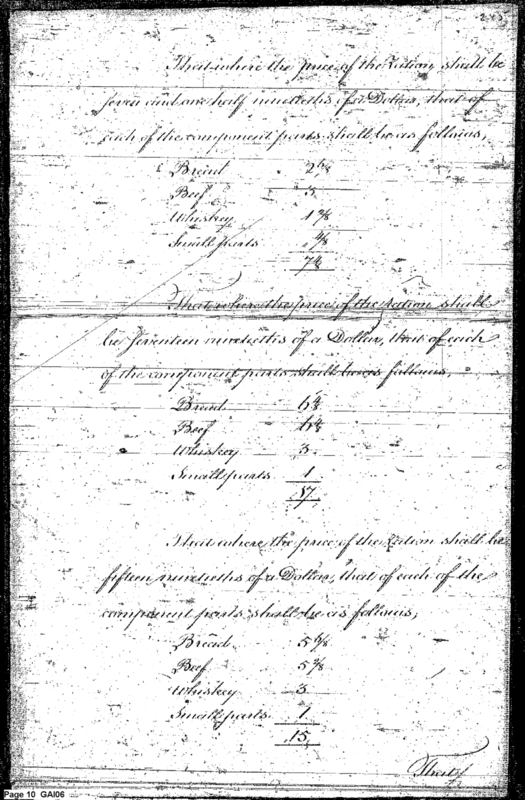 That where the price of the Ration shall be
seven and one half ninetieths of a Dollar, that of
each of the component parts shall be as follows,
Bread
Beef 3
Whiskey
Small parts
7 4/8
That where the price of the Ration shall
be seventeen ninetieths of a Dollar, that of each
of the component parts shall be as follows,
Bread 6 4/8
Beef 6 4/8
Whiskey 3
Small parts 1
17
That where the price of the Ration shall be
fifteen ninetieths of a Dollar, that of each of the
component parts shall be as follows,
Bread
Beef
Whiskey 3
Small parts 1
15
That
Page 10 GAI06